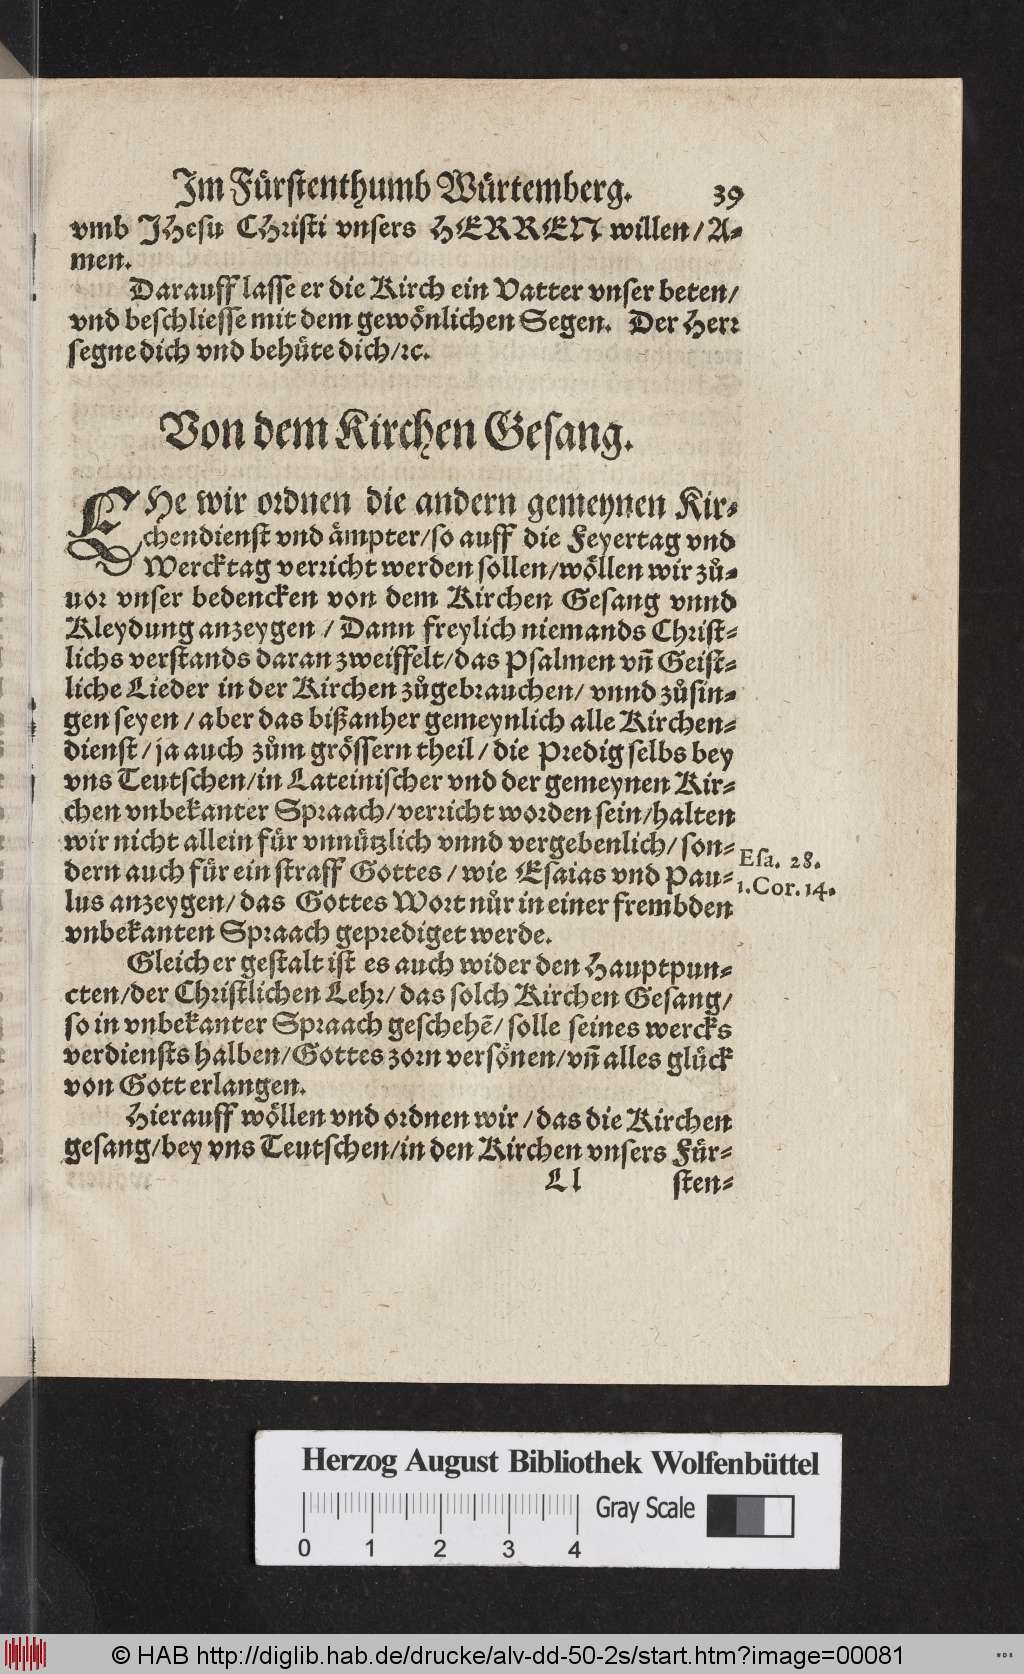 Im Fürstenthumb Würtemberg. 39
vmb JHesu CHristi vnsers HERREN willen/ A-
men.
Darauff lasse er die Kirch ein Vatter vnser beten/
vnd beschliesse mit dem gewönlichen Segen. Der Herr
segne dich vnd behüte dich/ ꝛc.
Von dem Kirchen Gesang.
EHe wir ordnen die andern gemeynen Kir-
chendienst vnd ämpter/ so auff die Feyertag vnd
Wercktag verricht werden sollen/ wöllen wir zů-
uor vnser bedencken von dem Kirchen Gesang vnnd
Kleydung anzeygen / Dann freylich niemands Christ-
lichs verstands daran zweiffelt/ das Psalmen vn̄ Geist-
liche Lieder in der Kirchen zůgebrauchen/ vnnd zůsin-
gen seyen / aber das bißanher gemeynlich alle Kirchen-
dienst/ ja auch zům grössern theil / die Predig selbs bey
vns Teutschen/ in Lateinischer vnd der gemeynen Kir-
chen vnbekanter Spraach/ verricht worden sein/ halten
wir nicht allein für vnnützlich vnnd vergebenlich/ son-
dern auch für ein straff Gottes / wie Esaias vnd Pau-
lus anzeygen/ das Gottes Wort nůr in einer frembden
vnbekanten Spraach geprediget werde.
Esa. 28.
1. Cor. 14.
Gleicher gestalt ist es auch wider den Hauptpun-
cten/ der Christlichen Lehr/ das solch Kirchen Gesang/
so in vnbekanter Spraach geschehē/ solle seines wercks
verdiensts halben/ Gottes zorn versönen/ vn̄ alles glück
von Gott erlangen.
Hierauff wöllen vnd ordnen wir / das die Kirchen
gesang/ bey vns Teutschen/ in den Kirchen vnsers Für-
Ll sten-
Herzog August Bibliothek Wolfenbüttel
Gray Scale
0 1 2 3 4
© HAB http://diglib.hab.de/drucke/alv-dd-50-2s/start.htm?image=00081